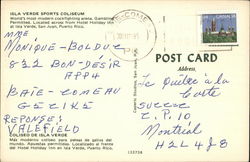 ISLA VERDE SPORTS COLISEUM
World's most modern cockfighting arena. Gambling
Permitted. Located across from Hotel Holiday Inn
at Isla Verde, San Juan, Puerto Rico.
MME:
MONIQUE-BOLDUC
832 BON-DÉSIR
APP4
BAIE-COMEAU
REPONSE:
VALEFIELD
COLISEO DE ISLA VERDE
Más moderno coliseo para peleas de gallos del
mundo. Apuestas permitidas. Localizado al frente
de Hotel Holiday Inn en Isla Verde, San Juan, Puerto Rico.
POST CARD
Address
La Quête à la
Carte
SUCC C
C.P. 10
Montréal
H2L 4J8